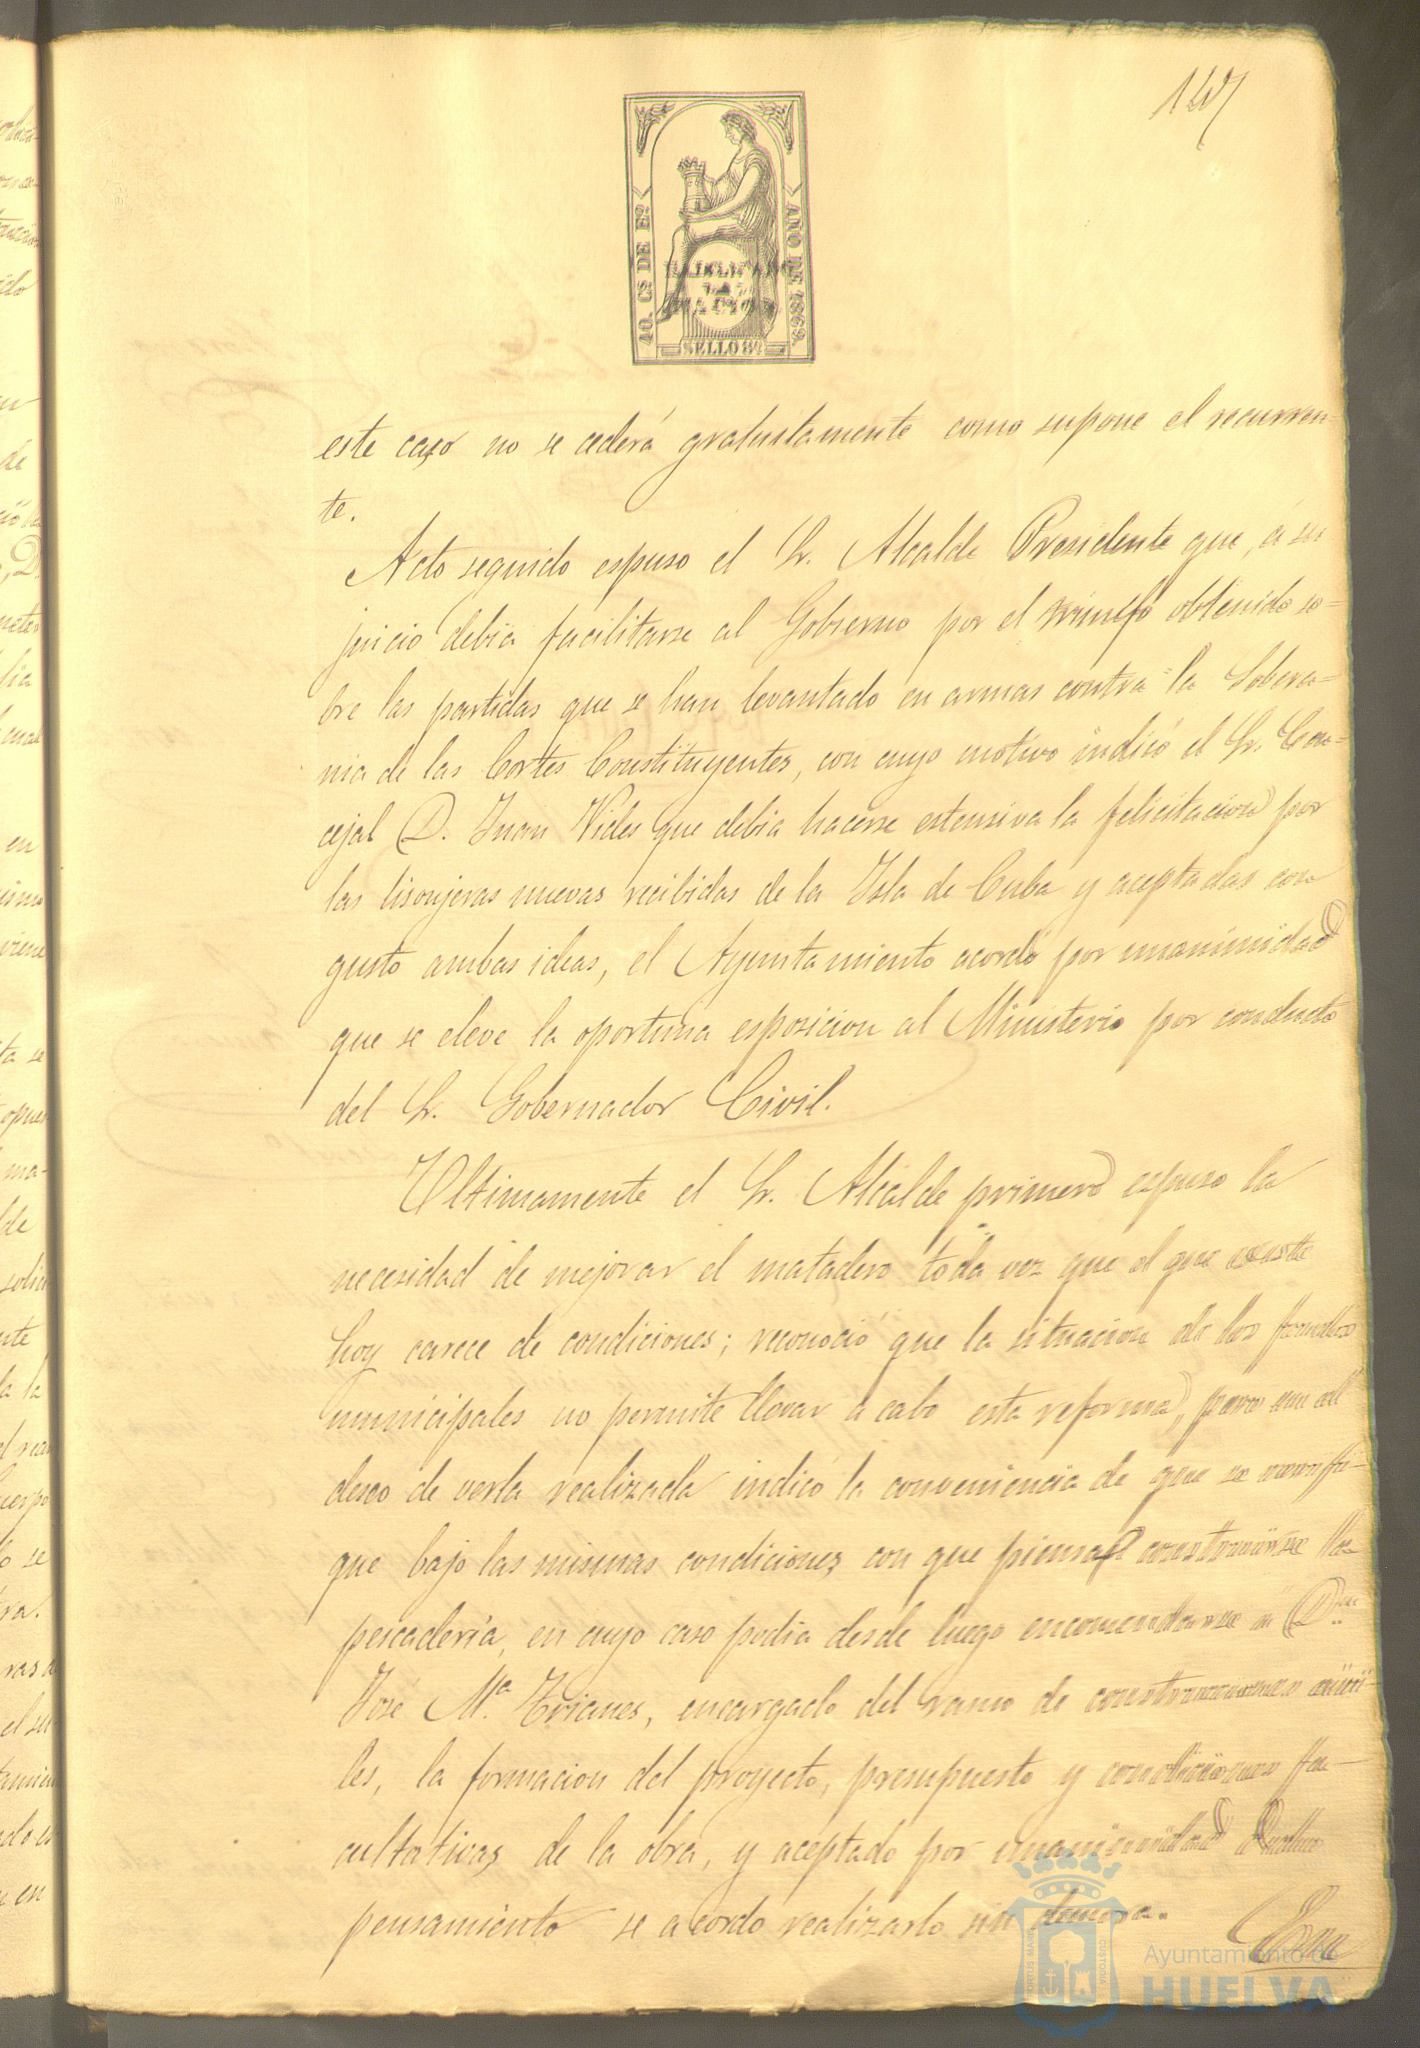 147
40. CS DE Eº
AÑO DE 1869.
SELLO 8º
este caso no se cederá gratuitamente como supone el recurren-
te.
Acto seguido espuso el Sr. Alcalde Presidente que, á su
juicio debia facilitarse al Gobierno por el triunfo obtenido so-
bre las partidas que se han levantado en armas contra la Sobera-
nia de las Cortes Constituyentes, con cuyo motivo indicó el Sr. Con-
cejal D. Juan Vides que debia hacerse estensiva la felicitacion por
las lisonjeras nuevas recibidas de la Isla de Cuba y aceptadas con
gusto ambas ideas, el Ayuntamiento acordó por unanimidad
que se eleve la oportuna esposicion al Ministerio por conducto
del Sr. Gobernador Civil.
Ultimamente el Sr. Alcalde primero espuso la
necesidad de mejorar el matadero toda vez que el que existe
hoy carece de condiciones; reconoció que la situacion de los fondos
municipales no permite llevar á cabo esta reforma, pero en el
deseo de verla realizada indicó la conveniencia de que se verifi-
que bajo las mismas condiciones con que piensa construirse la
pescadería, en cuyo caso podia desde luego encomendarse á Dn
José Mª Trianes, encargado del ramo de construcciones civi-
les, la formacion del proyecto, presupuesto y condiciones fa-
cultativas de la obra, y aceptado por unanimidad dicho
pensamiento se acordó realizarlo sin demora.
Ayuntamiento de
HUELVA